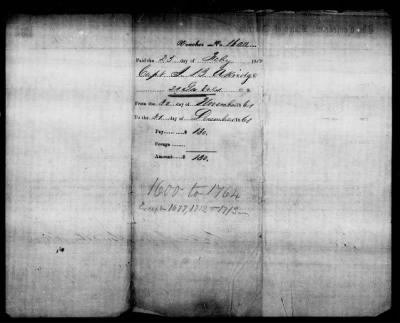 Voucher No. 1600
Paid the 23 day of Feby 186
Capt. S. B.
From the 22 day of November 62
To the 22 day of December 62
Pay, $ 130.
Forage
Amount $ 130.
1600 to 1764
Except 1677, 1712 - 1713